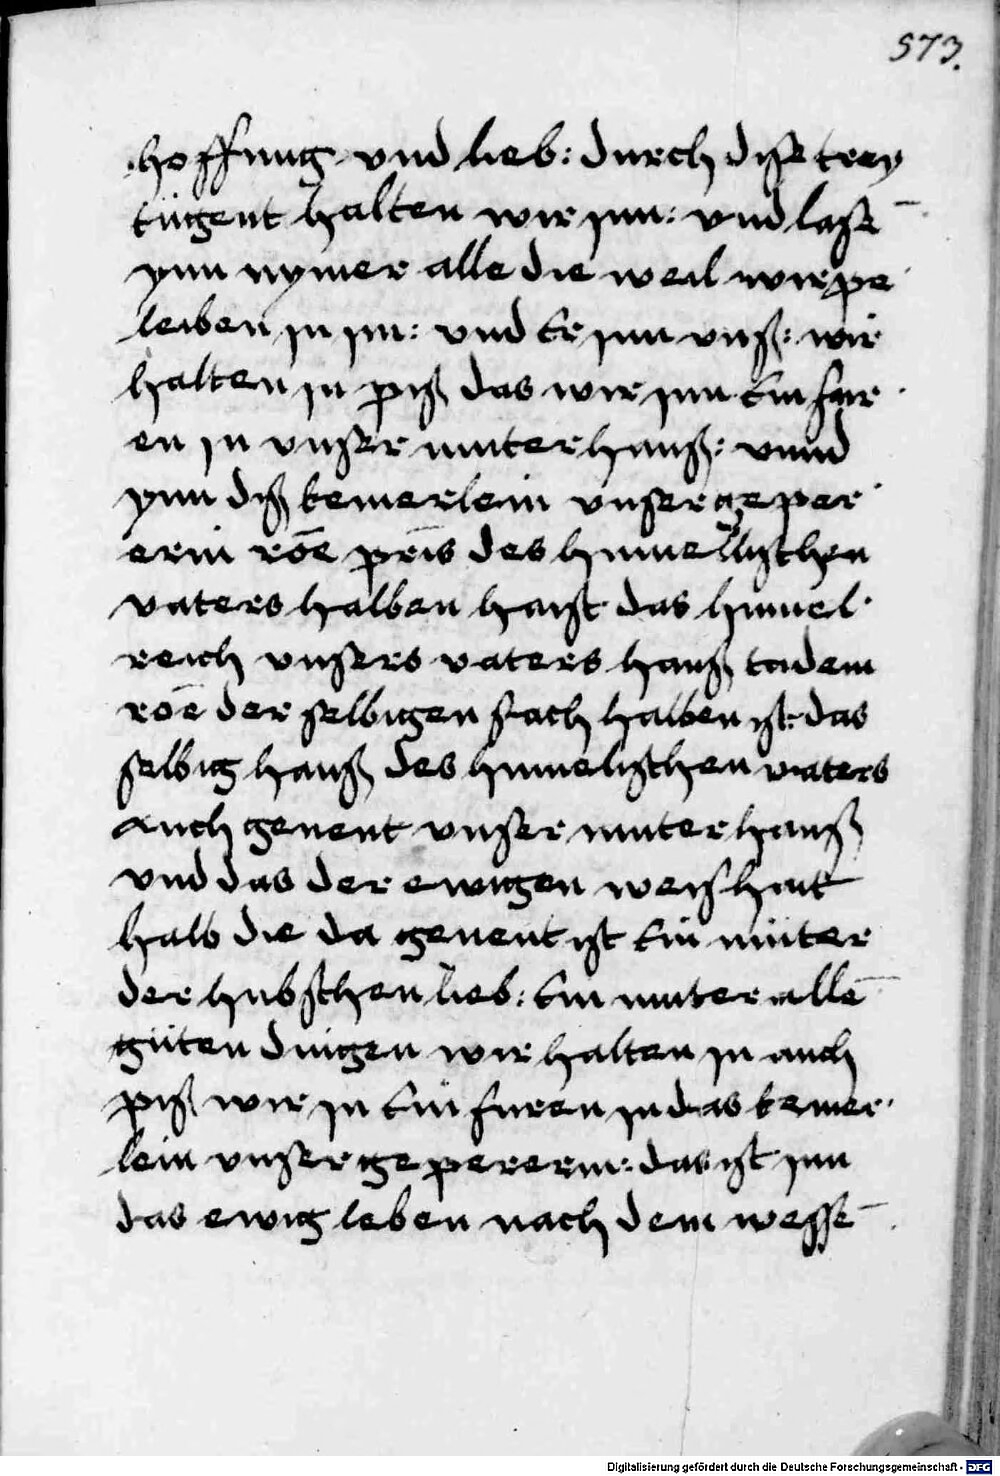 573.
hoffnung vnd lieb: durch diße trey
tügent halten wir jnn: vnd laßē
ynn nymer alle die weil wir pe
leiben jn jm: vnd Er jnn vnß: wir
halten jn piß das wir jnn Ein für
en jn vnßer muter hauß: vnnd
ynn diß kemerlein vnßer ge per
erin rōe prīs des himellischen
vaters halben haist das himel
reich vnßers vaters hauß eadem
rōe der selbigen sach halben ist das
selbig hauß des himelischen vaters
auch genent vnßer muter hauß
vnd das der ewigen weißhait
halb die da genent ist Ein müter
der hübschen lieb: Ein muter allē
güten dingen wir halten jn auch
piß wir jn Ein füren jn das kemer
lein vnßer ge pererin: das ist jnn
das ewig leben nach dem weßē
Digitalisierung gefördert durch die Deutsche Forschungsgemeinschaft - DFG